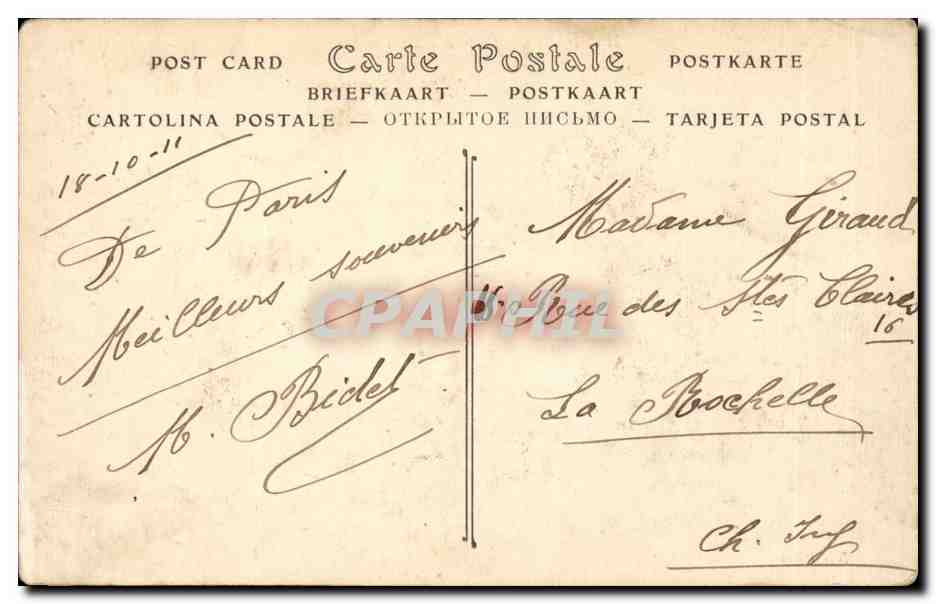 POST CARD Carte Postale POSTKARTE
BRIEFKAART — POSTKAART
CARTOLINA POSTALE — ОТКРЫТОЕ ПИСЬМО — TARJETA POSTAL
18-10-11
De Paris
Meilleurs souvenirs
M. Bidet
Madame Giraud
Rue des Stes Claires
16
La Rochelle
Ch. Inf
CPAPHIL